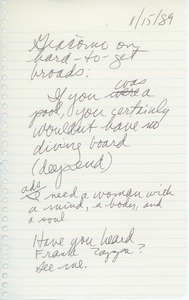 11/15/89
Giacomo on
hard-to-get
broads:
If you was
a
pool, you certainly
wouldn't have no
diving board
(deep end)
ads
I need a woman with
a mind, a body, and
a soul.
Have you heard
Frank Zappa?
See me.